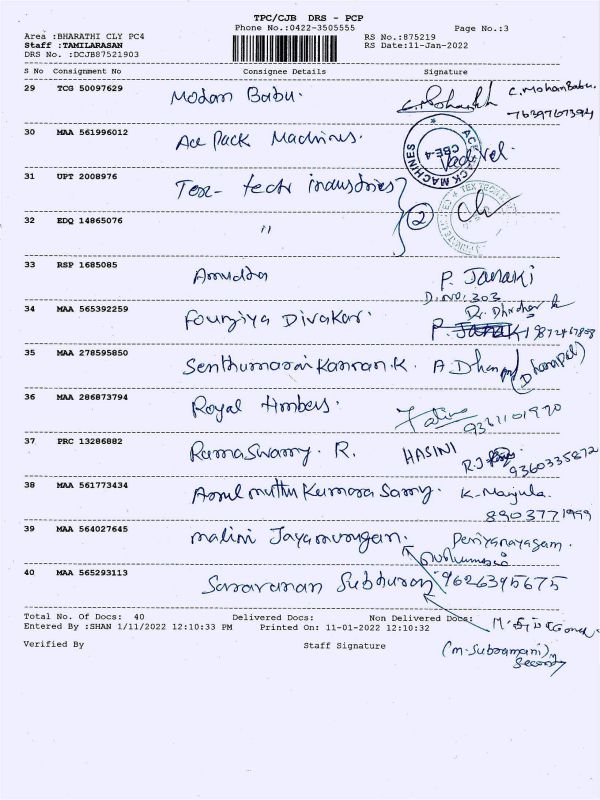 TPC/CJB DRS - PCP
Phone No.:0422-3505555 Page No.:3
Area :BHARATHI CLY PC4 RS No.:875219
Staff :TAMILARASAN RS Date:11-Jan-2022
DRS No. :DCJB87521903
S No Consignment No Consignee Details Signature
29 TCG 50097629 Modan Babu. C.MohanBabu.
7639767394
30 MAA 561996012 Ace Pack Machines. Vadivel.
ACE PACK MACHINES CBE-4
31 UPT 2008976 Tex- tech industries
2
32 EDQ 14865076 "
33 RSP 1685085 Anudha P. JANAKI
D.NO: 303
34 MAA 565392259 Fourziya Divakar.
35 MAA 278595850 Senthumarai Kannan.K. A Dhanpal (Dhanapal)
36 MAA 286873794 Royal timbers. 9361101970
37 PRC 13286882 Ramaswamy. R. HASINI
9360335872
38 MAA 561773434 Arulmuthu Kumara Samy. K-Manjula.
8903771999
39 MAA 564027645 malini Jayamurugan. Periyanayagam.
40 MAA 565293113 Saravanan 9626395675
Total No. Of Docs: 40 Delivered Docs: Non Delivered Docs:
Entered By :SHAN 1/11/2022 12:10:33 PM Printed On: 11-01-2022 12:10:32
Verified By Staff Signature (M.Subramani)
Security